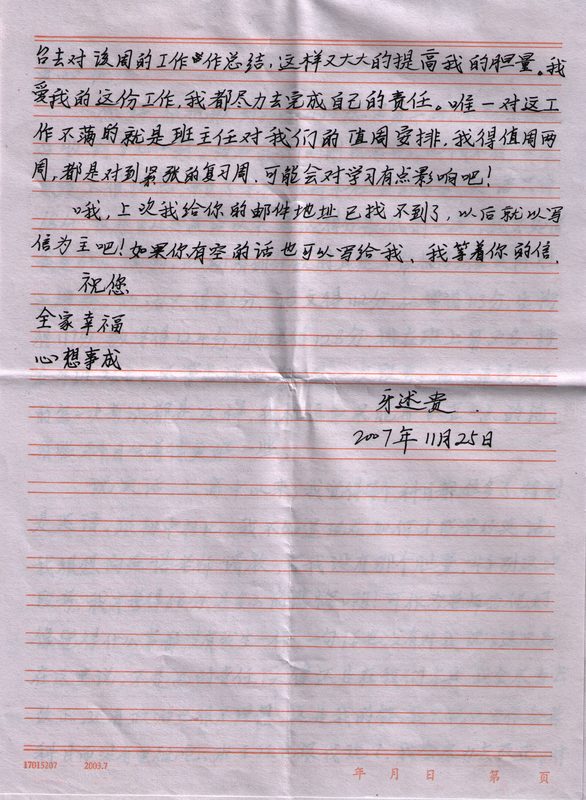 台去对该周的工作作总结，这样又大大的提高我的胆量。我
爱我的这份工作，我都尽力去完成自己的责任。唯一对这工
作不满的就是班主任对我们的值周安排，我得值周两
周，都是对到紧张的复习周，可能会对学习有点影响吧！
哦，上次我给你的邮件地址已找不到了，以后就以写
信为主吧！如果你有空的话也可以写给我、我等着你的信.
祝您
全家幸福
心想事成
牙述贵.
2007年11月25日
17015207 2003.7
年 月 日 第 页